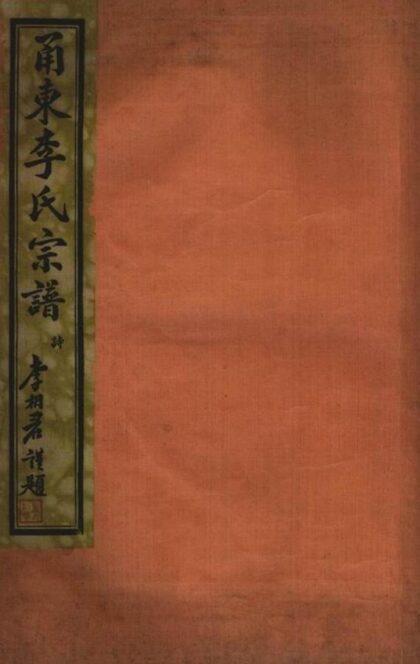 甬東李氏宗譜
李相君謹題